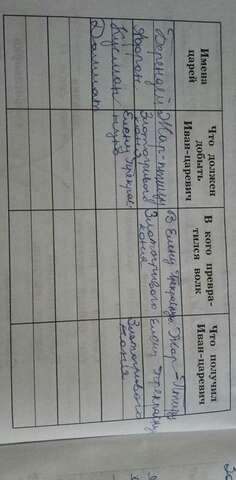 Имена
царей
Что должен
добыть
Иван-царевич
В кого превра-
тился волк
Что получил
Иван-царевич
Берендей
Жар-птицу
в Елену Прекрасную
Жар-Птицу
Афрон
Златогривого
коня
Златогривого
коня
Елену Прекрасную
Кусман
Елену Прекрас-
ную
Златогривого
коня
Далмат